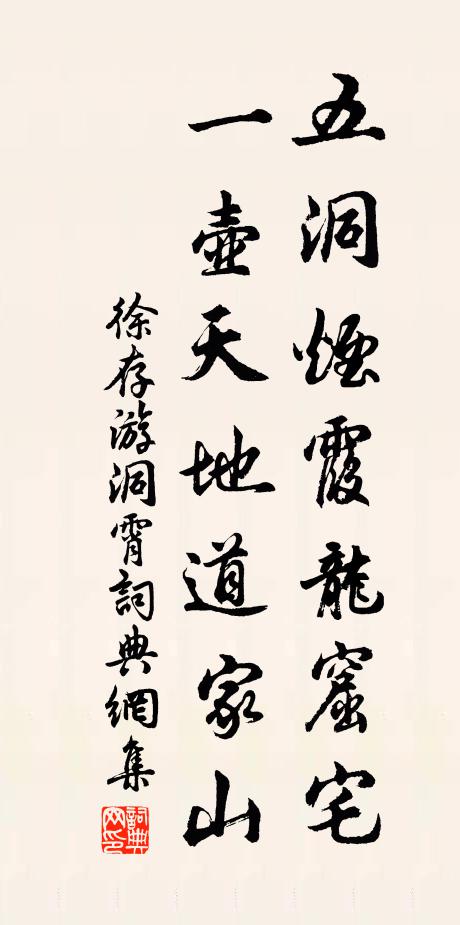 五洞煙霞龍窟宅
一壺天地道家山
徐存游洞霄詞典網集
詞典網印